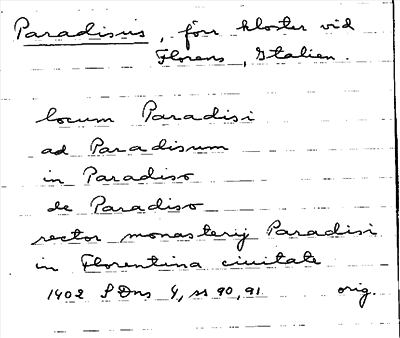 Paradisus, förr kloster vid
Florens, Italien.
locum Paradisi
ad Paradisum
in Paradiso
de Paradiso
rector monasterij Paradisi
in Florentina ciuitate
1402 SDns 4, ss 90, 91 orig.